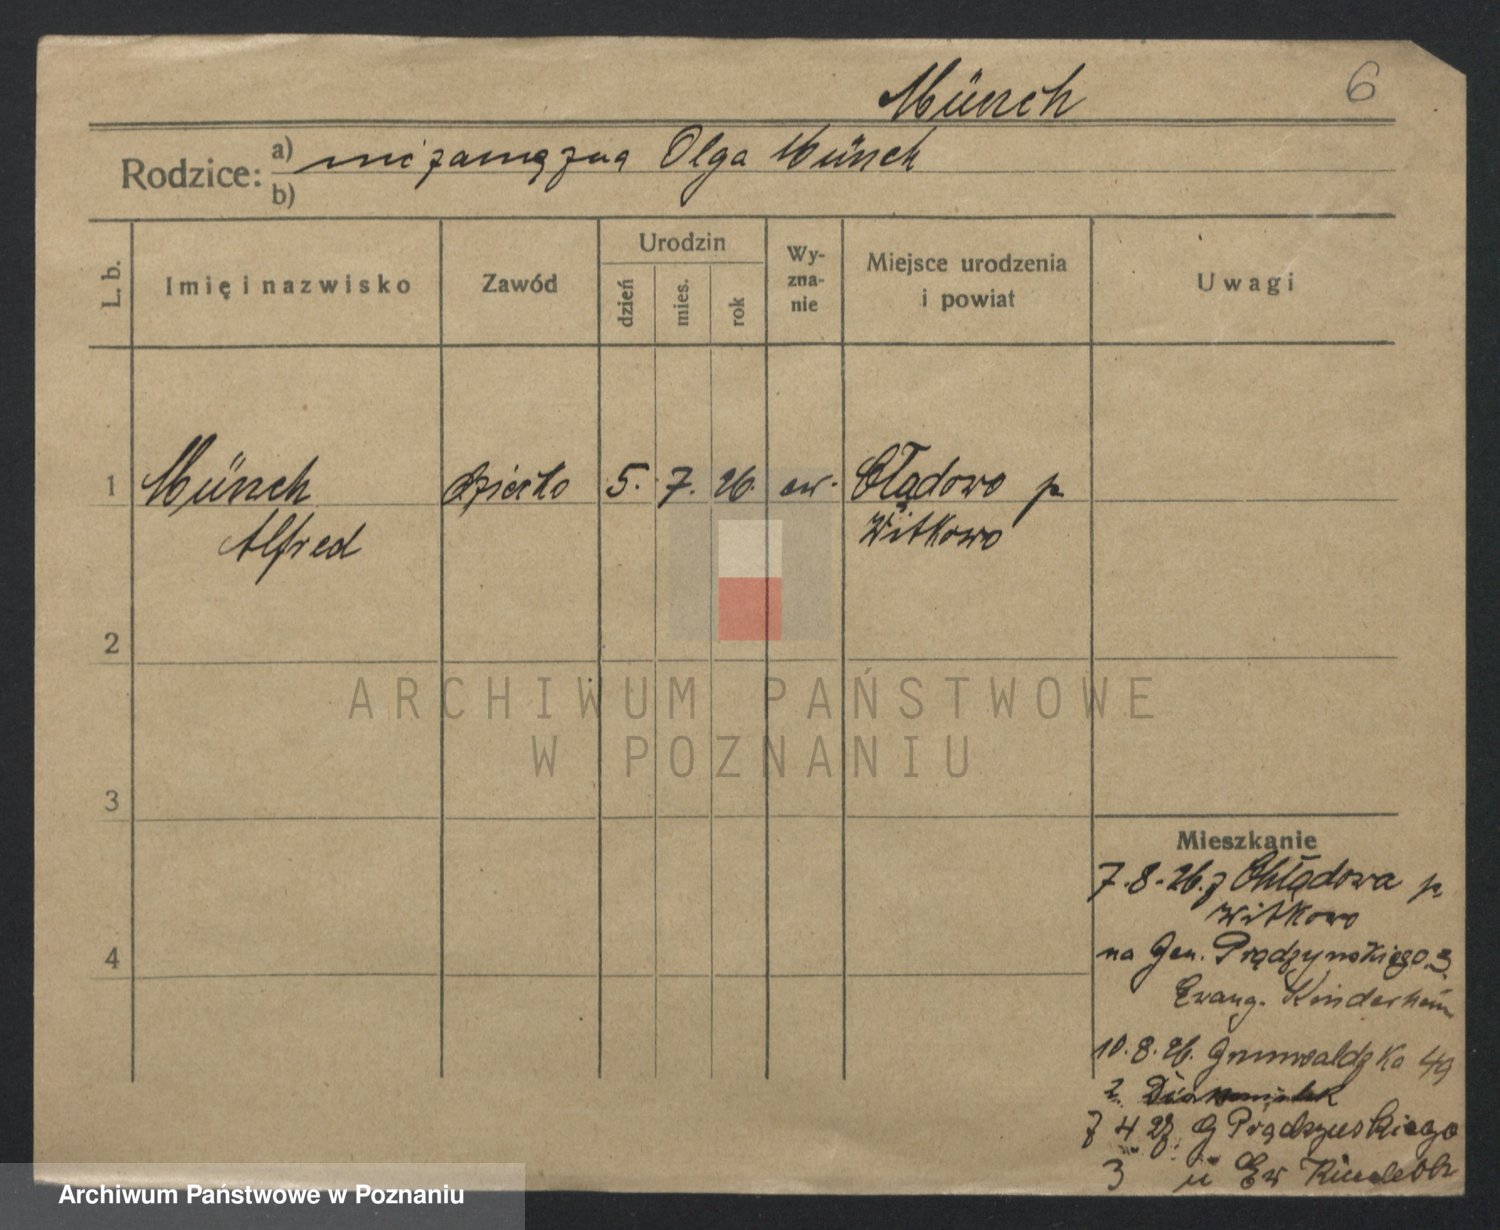 Münch
6
Rodzice: a) niezamężna Olga Münch
b)
L. b.
Imię i nazwisko
Zawód
Urodzin
dzień
mies.
rok
Wy-
zna-
nie
Miejsce urodzenia
i powiat
Uwagi
1 Münch dziecko 5. 7. 26. ew. Cłądowo p.
Alfred Witkowo
2
3
4
ARCHIWUM PAŃSTWOWE
W POZNANIU
Mieszkanie
7.8.26. z Chłądowa p.
Witkowo
na Gen. Prądzyńskiego 3
Evang. Kinderheim
10.8.26. Grunwaldzka 49
7 4 27. G Prądzyńskiego
3 u Ew
Archiwum Państwowe w Poznaniu